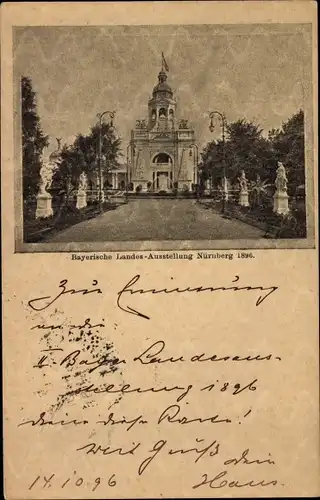 Bayerische Landes-Ausstellung Nürnberg 1896.
Zur Erinnerung
an die
II. Bayr. Landesaus-
stellung 1896
diene diese Karte!
Mit Gruß Dein
Hans.
14.10.96